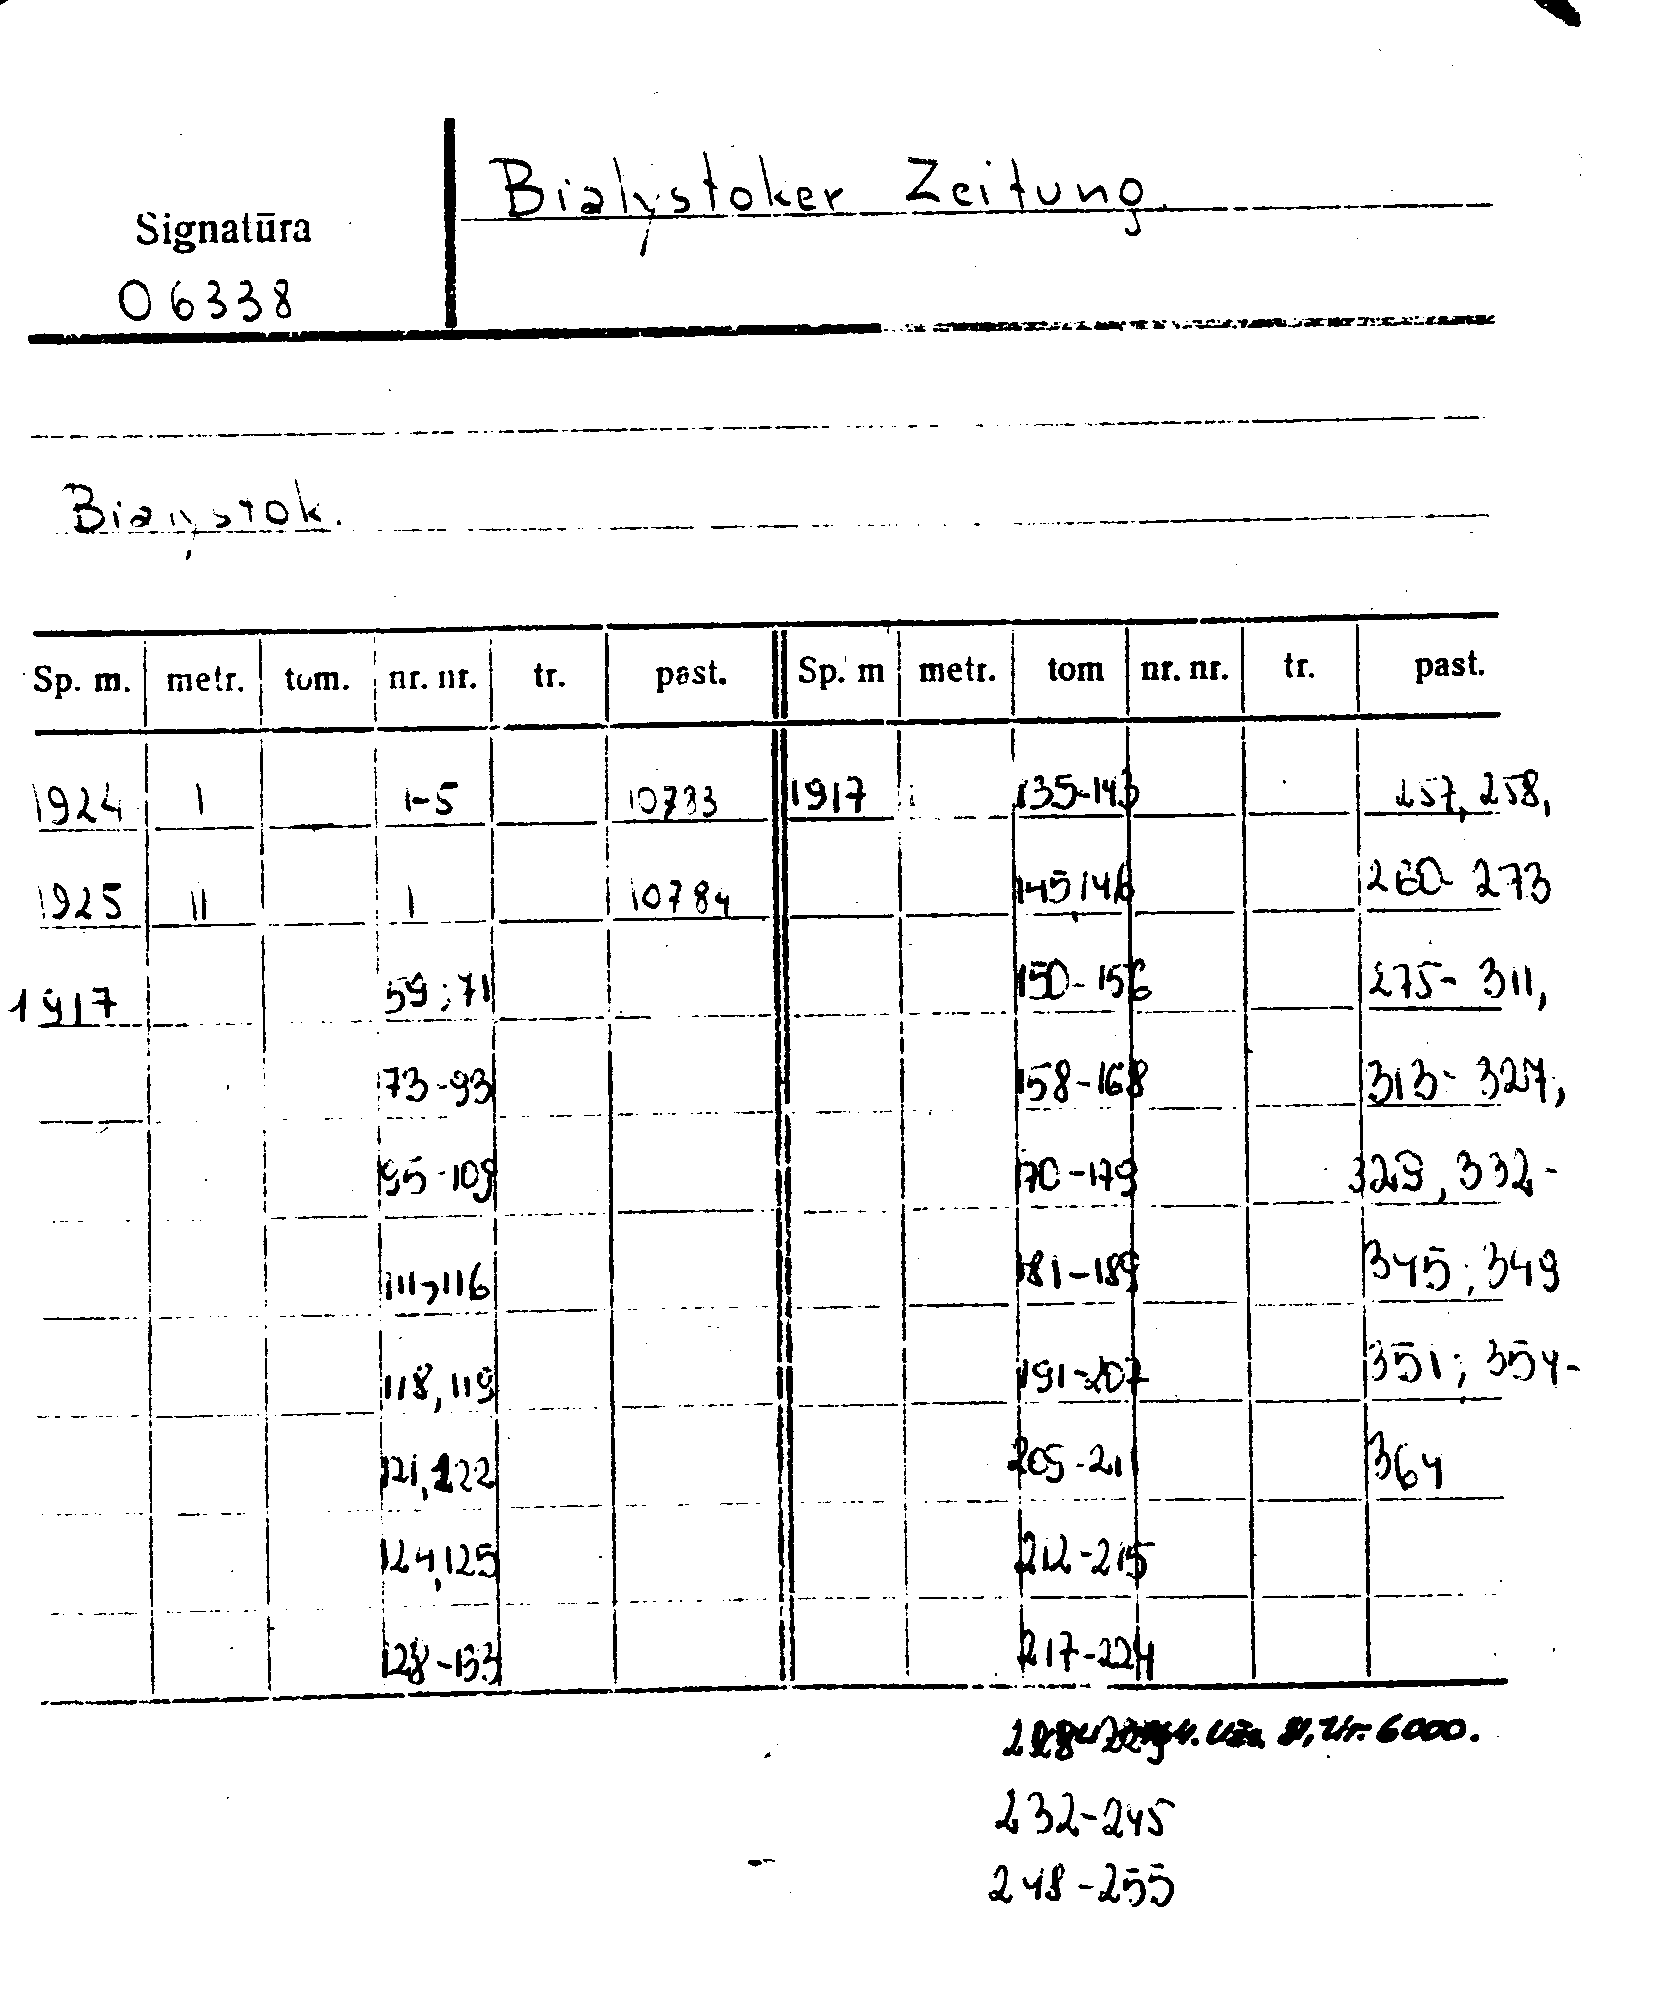 Bialystoker Zeitung.
Signatūra
06338
Bialystok.
Sp. m. metr. tom. nr. nr. tr. past. Sp. m metr. tom nr. nr. tr. past.
1924 I 1-5 10733 1917 135-143 257, 258,
1925 II 1 10784 145,146 260-273
1917 59;71 150-156 275-311,
73-93 158-168 313-327,
95-109 170-179 329, 332-
111,116 181-189 345; 349
118,119 191-207 351; 354-
121,122 209-211 364
124,125 212-215
128-133 217-224
228-229 6000.
232-245
248-255